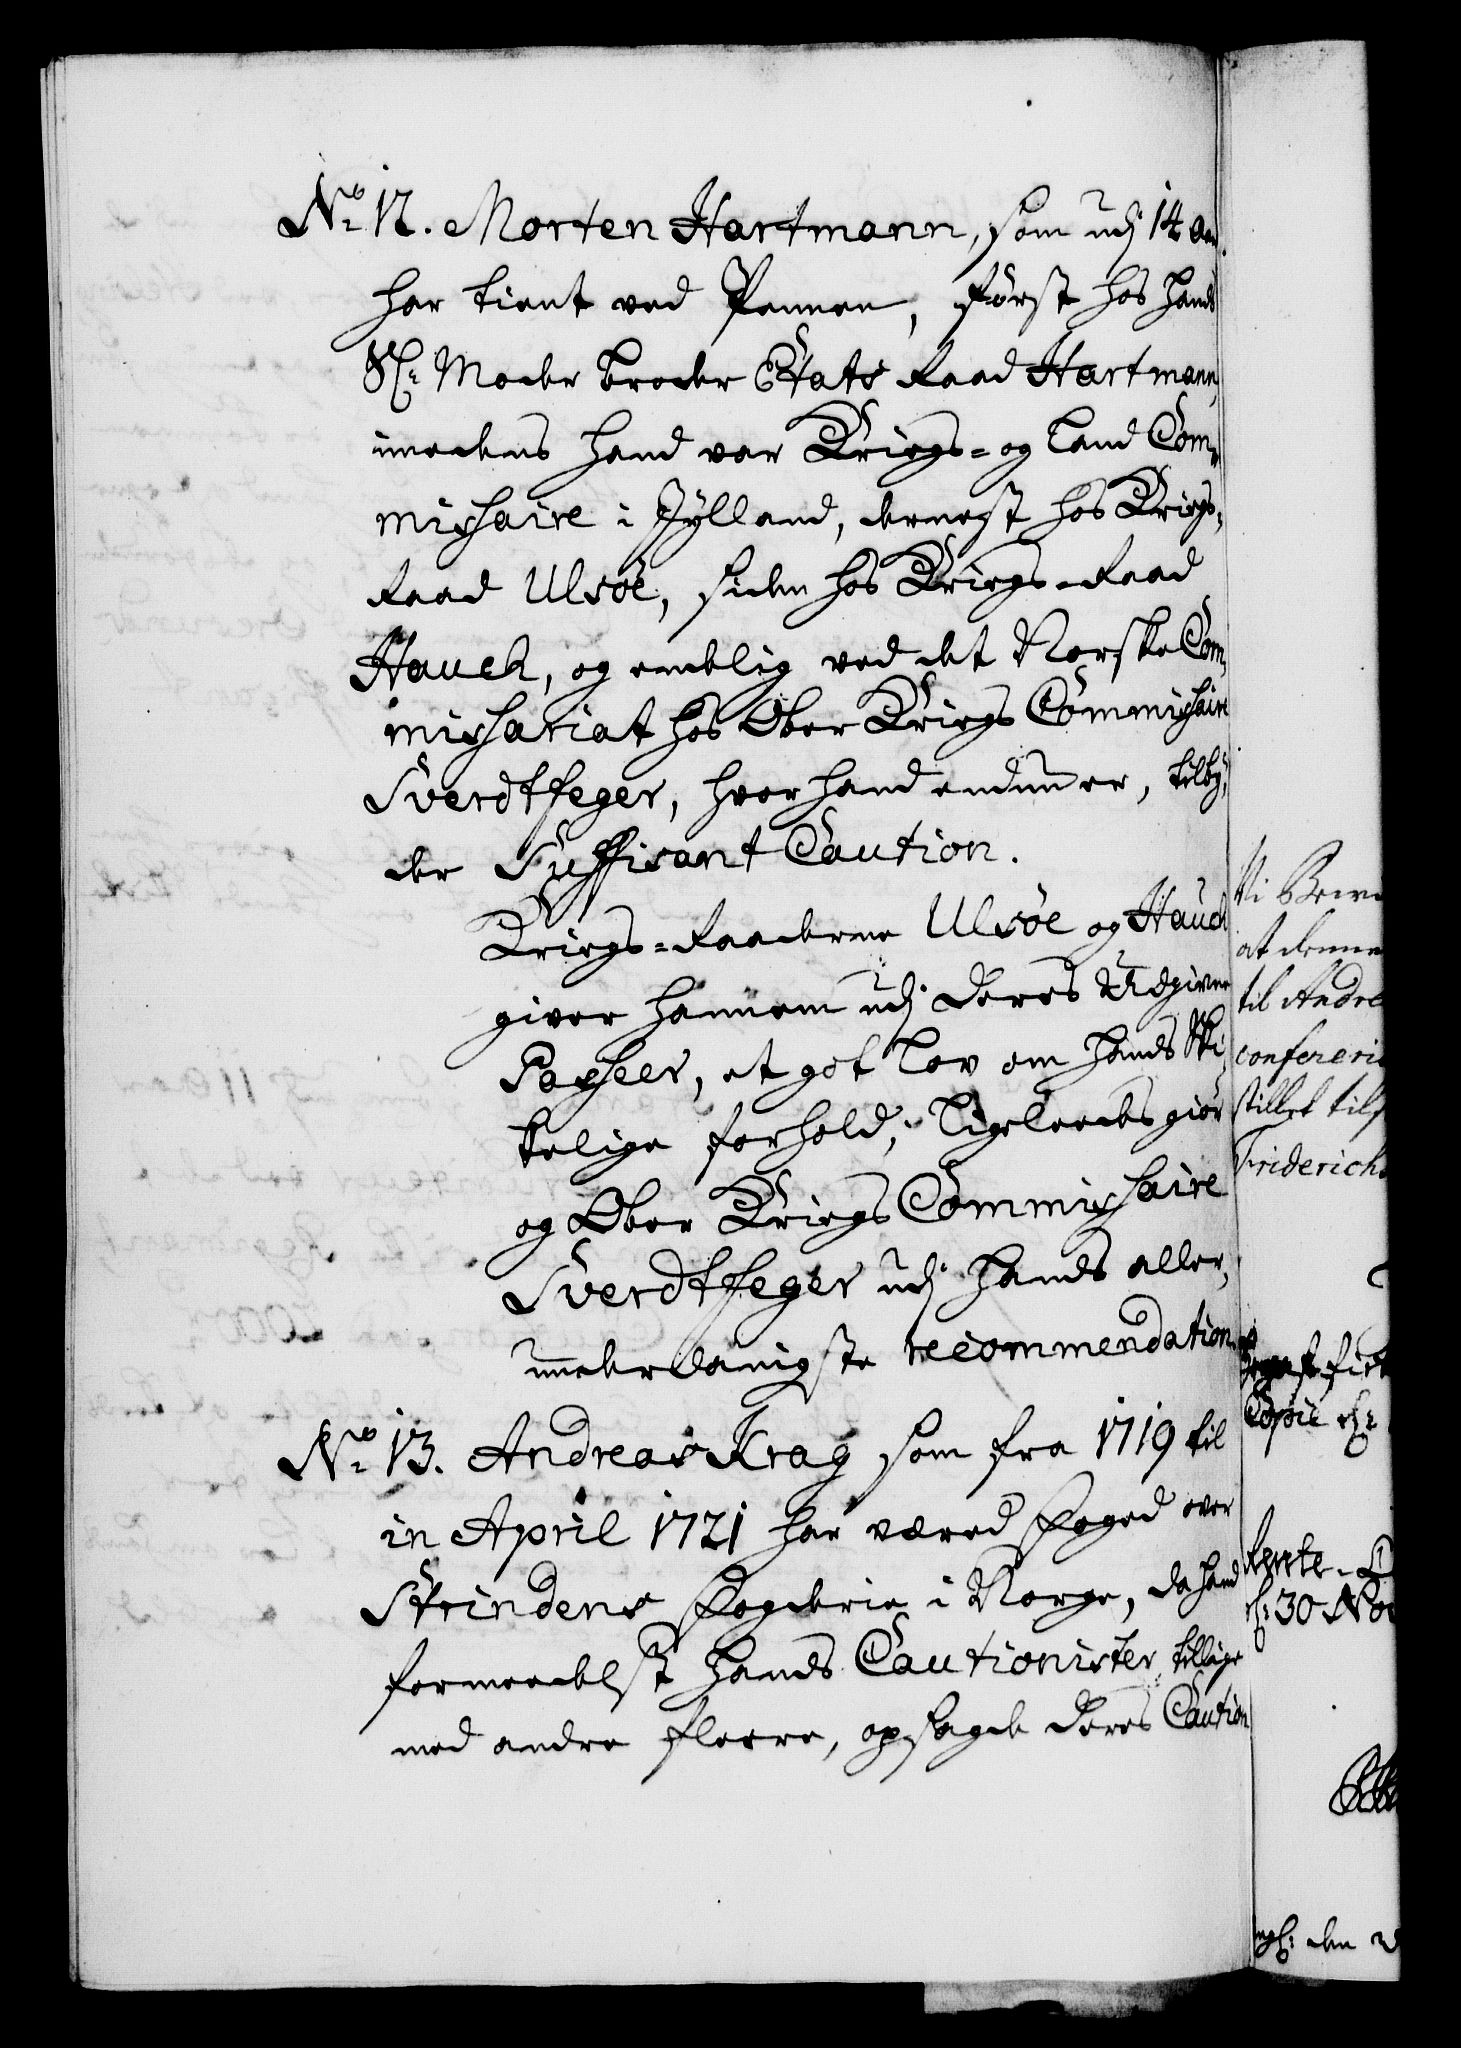 No 12. Morten Hartmann, som udj 14 aar
har tient ved Pennen, först hos hands
Sl: Moder broder Etats Raad Hartmann,
imedens hand var Kriegs- og Land Com-
missaire i Jylland, dernest hos Kriegs-
Raad Ulsöe, siden hos Kriegs-Raad
Hauch, og endelig ved det Norske Com-
missariat hos Ober Kriegs Commissaire
Sverdtfeger, hvor hand endnu er, tilby-
der Suffisant Caution.
Kriegs-Raaderne Ulsöe og Hauch
giver hannem udj deres Udgivne
Passeer, et got Lov om hands Ski-
kelige forhold, ligeleedes giör
og Ober Kriegs Commissaire
Sverdtfeger udj hands aller-
underdanigste recommendation.
No 13. Andreas Krag som fra 1719 til
in April 1721 har været Foged over
Strindens Fogderie i Norge, da hand
formeedelst hands Cautionister, tillige
med andre fleere, opsagde deres Caution
at denne
til Andre
confereri
stillet til
Friderich
Copie
30 Nov
den